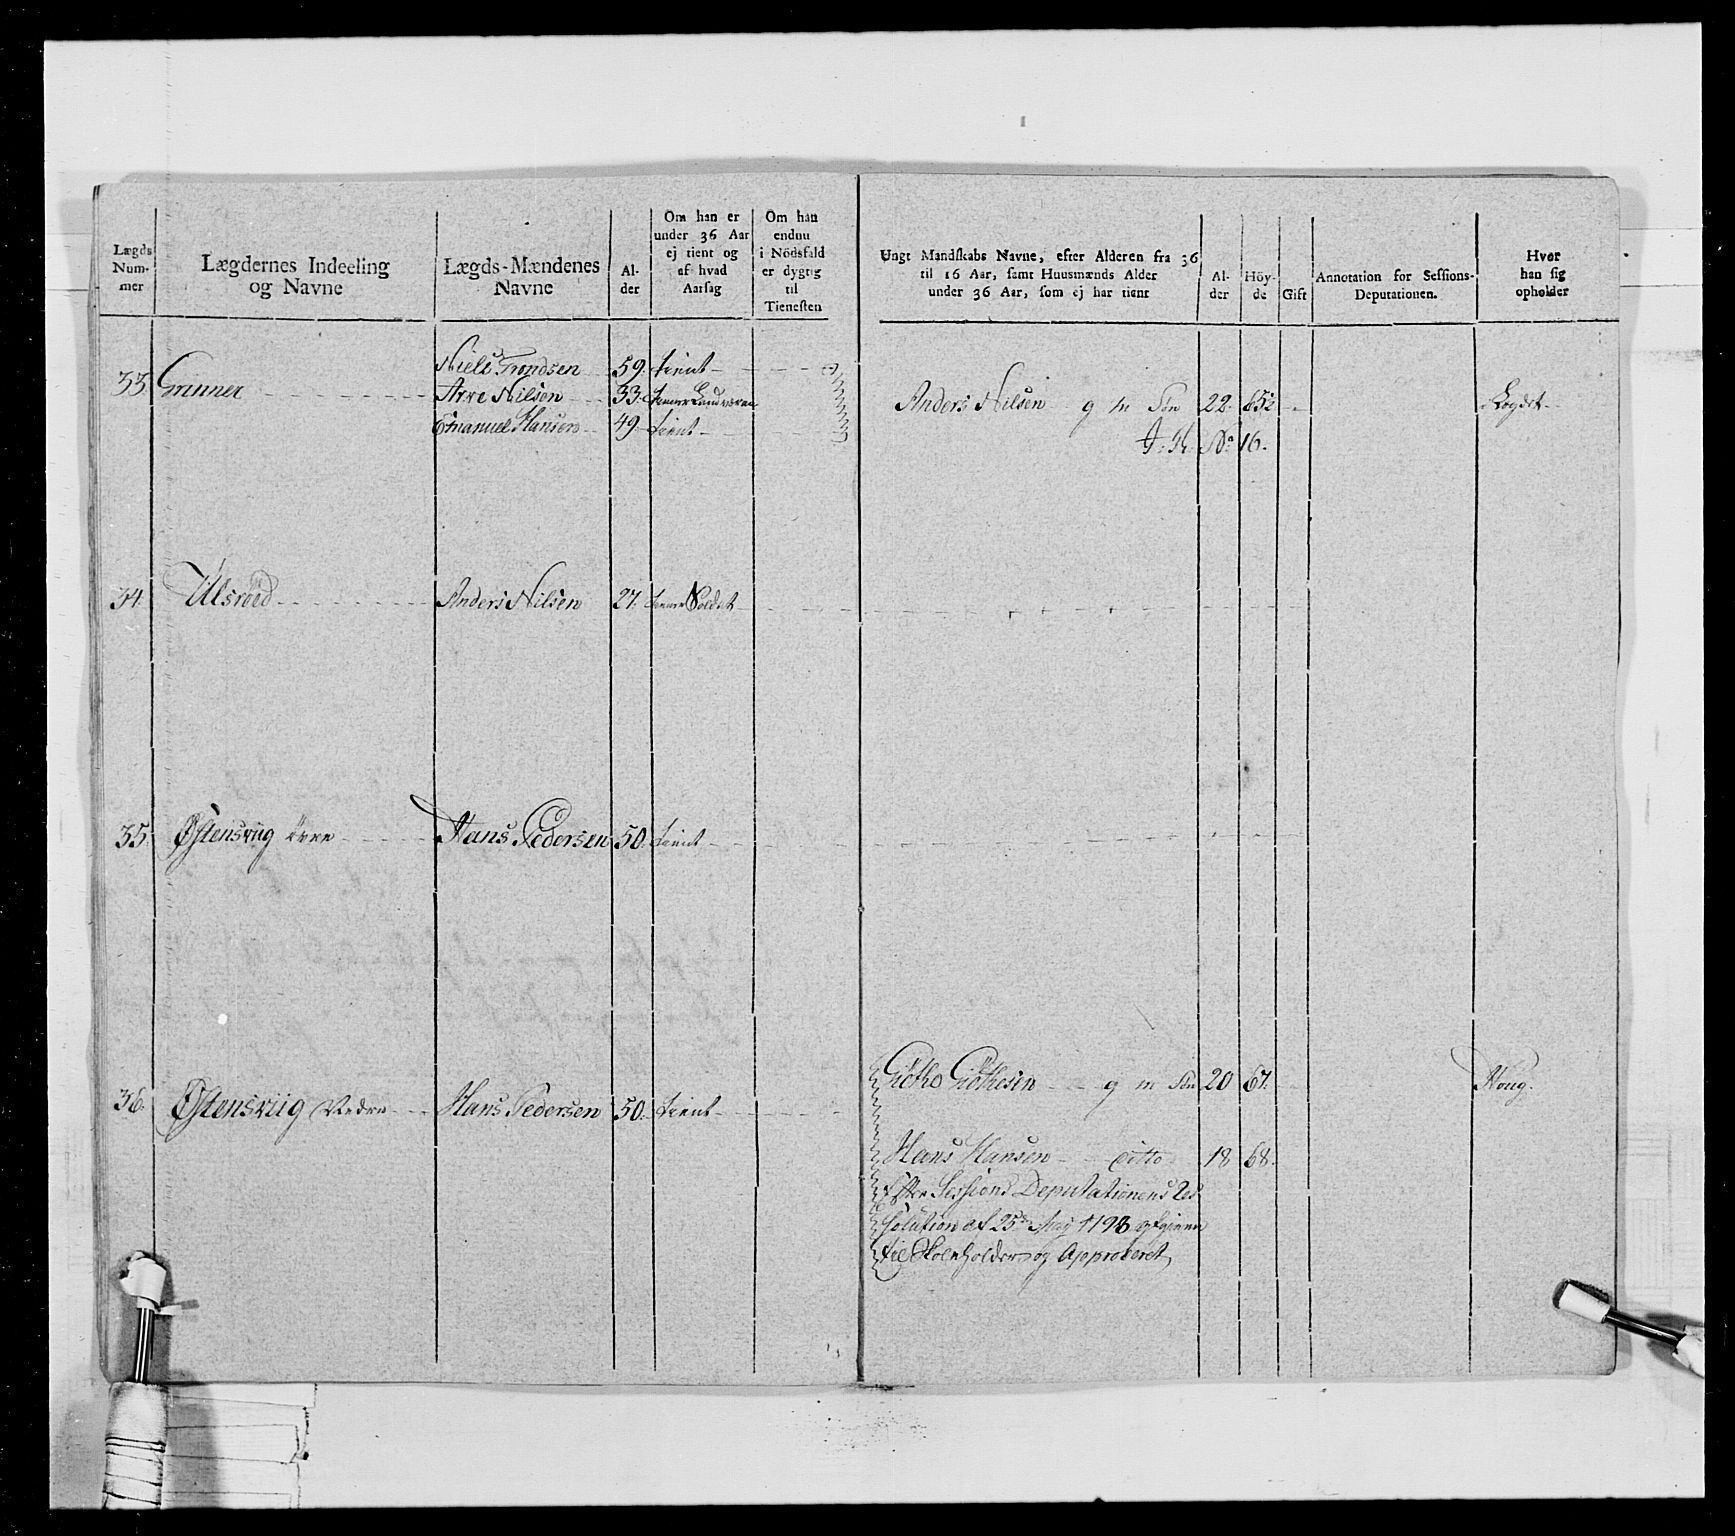 Lægds
Num-
mer
Lægdernes Indeeling
og Navne
Lægds-Mændenes
Navne
Al-
der
Om han er
under 36 Aar
ej tient og
af hvad
Aarsag
Om han
endnu
i Nödsfald
er dygtig
til
Tienesten
Ungt Mandskabs Navne, efter Alderen fra 36
til 16 Aar, samt Huusmænds Alder
under 36 Aar, som ej har tient
Al-
der
Höy-
de
Gift
Annotation for Sessions-
Deputationen.
Hvor
han sig
opholder
33. Grinner Niels Trondsen 59. tient
Arve Nilsen 33. tiener Landværn
Emanuel Hansen 49. tient
Anders Nilsen g m Søn 22. 65½ Lægdet
No 16.
34. Ulsröed Anders Nilsen 27. tiener Soldat
35. Østensviig övre Hans Pedersen 50. tient
36. Østensviig Nedre Hans Pedersen 50. tient
Giötho Giöthesen g m Søn 20 67. Houg.
Hans Hansen ditto 18 68.
Efter Sessions Deputationens Res
solution af 25de May 1798 afgiven
til Skoleholder og Approberet